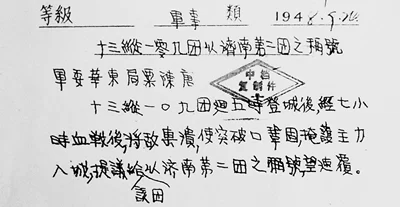 等級 軍事 類 1948.9.24.
十三縱一零九团以濟南第二团之稱號
軍委華東局粟陳唐
中档
复制件
十三縱一〇九团廻五時登城後,經七小
時血戰後,將敵擊潰,使突破口鞏固,掩護主力
入城,提議給以濟南第二团之稱號,望速覆。
該团